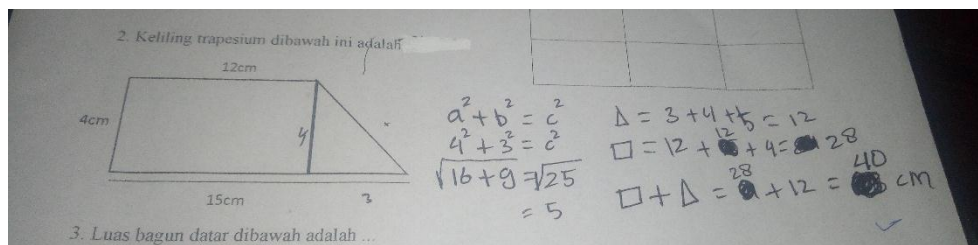 2. Keliling trapesium dibawah ini adalah
12cm
4cm
4
15cm
3
a² + b² = c²
4² + 3² = c²
√16+9 = √25
= 5
Δ = 3 + 4 + 5 = 12
□ = 12 + 12 + 4 = 28
□ + Δ = 28 + 12 = 40 cm
3. Luas bagun datar dibawah adalah ...